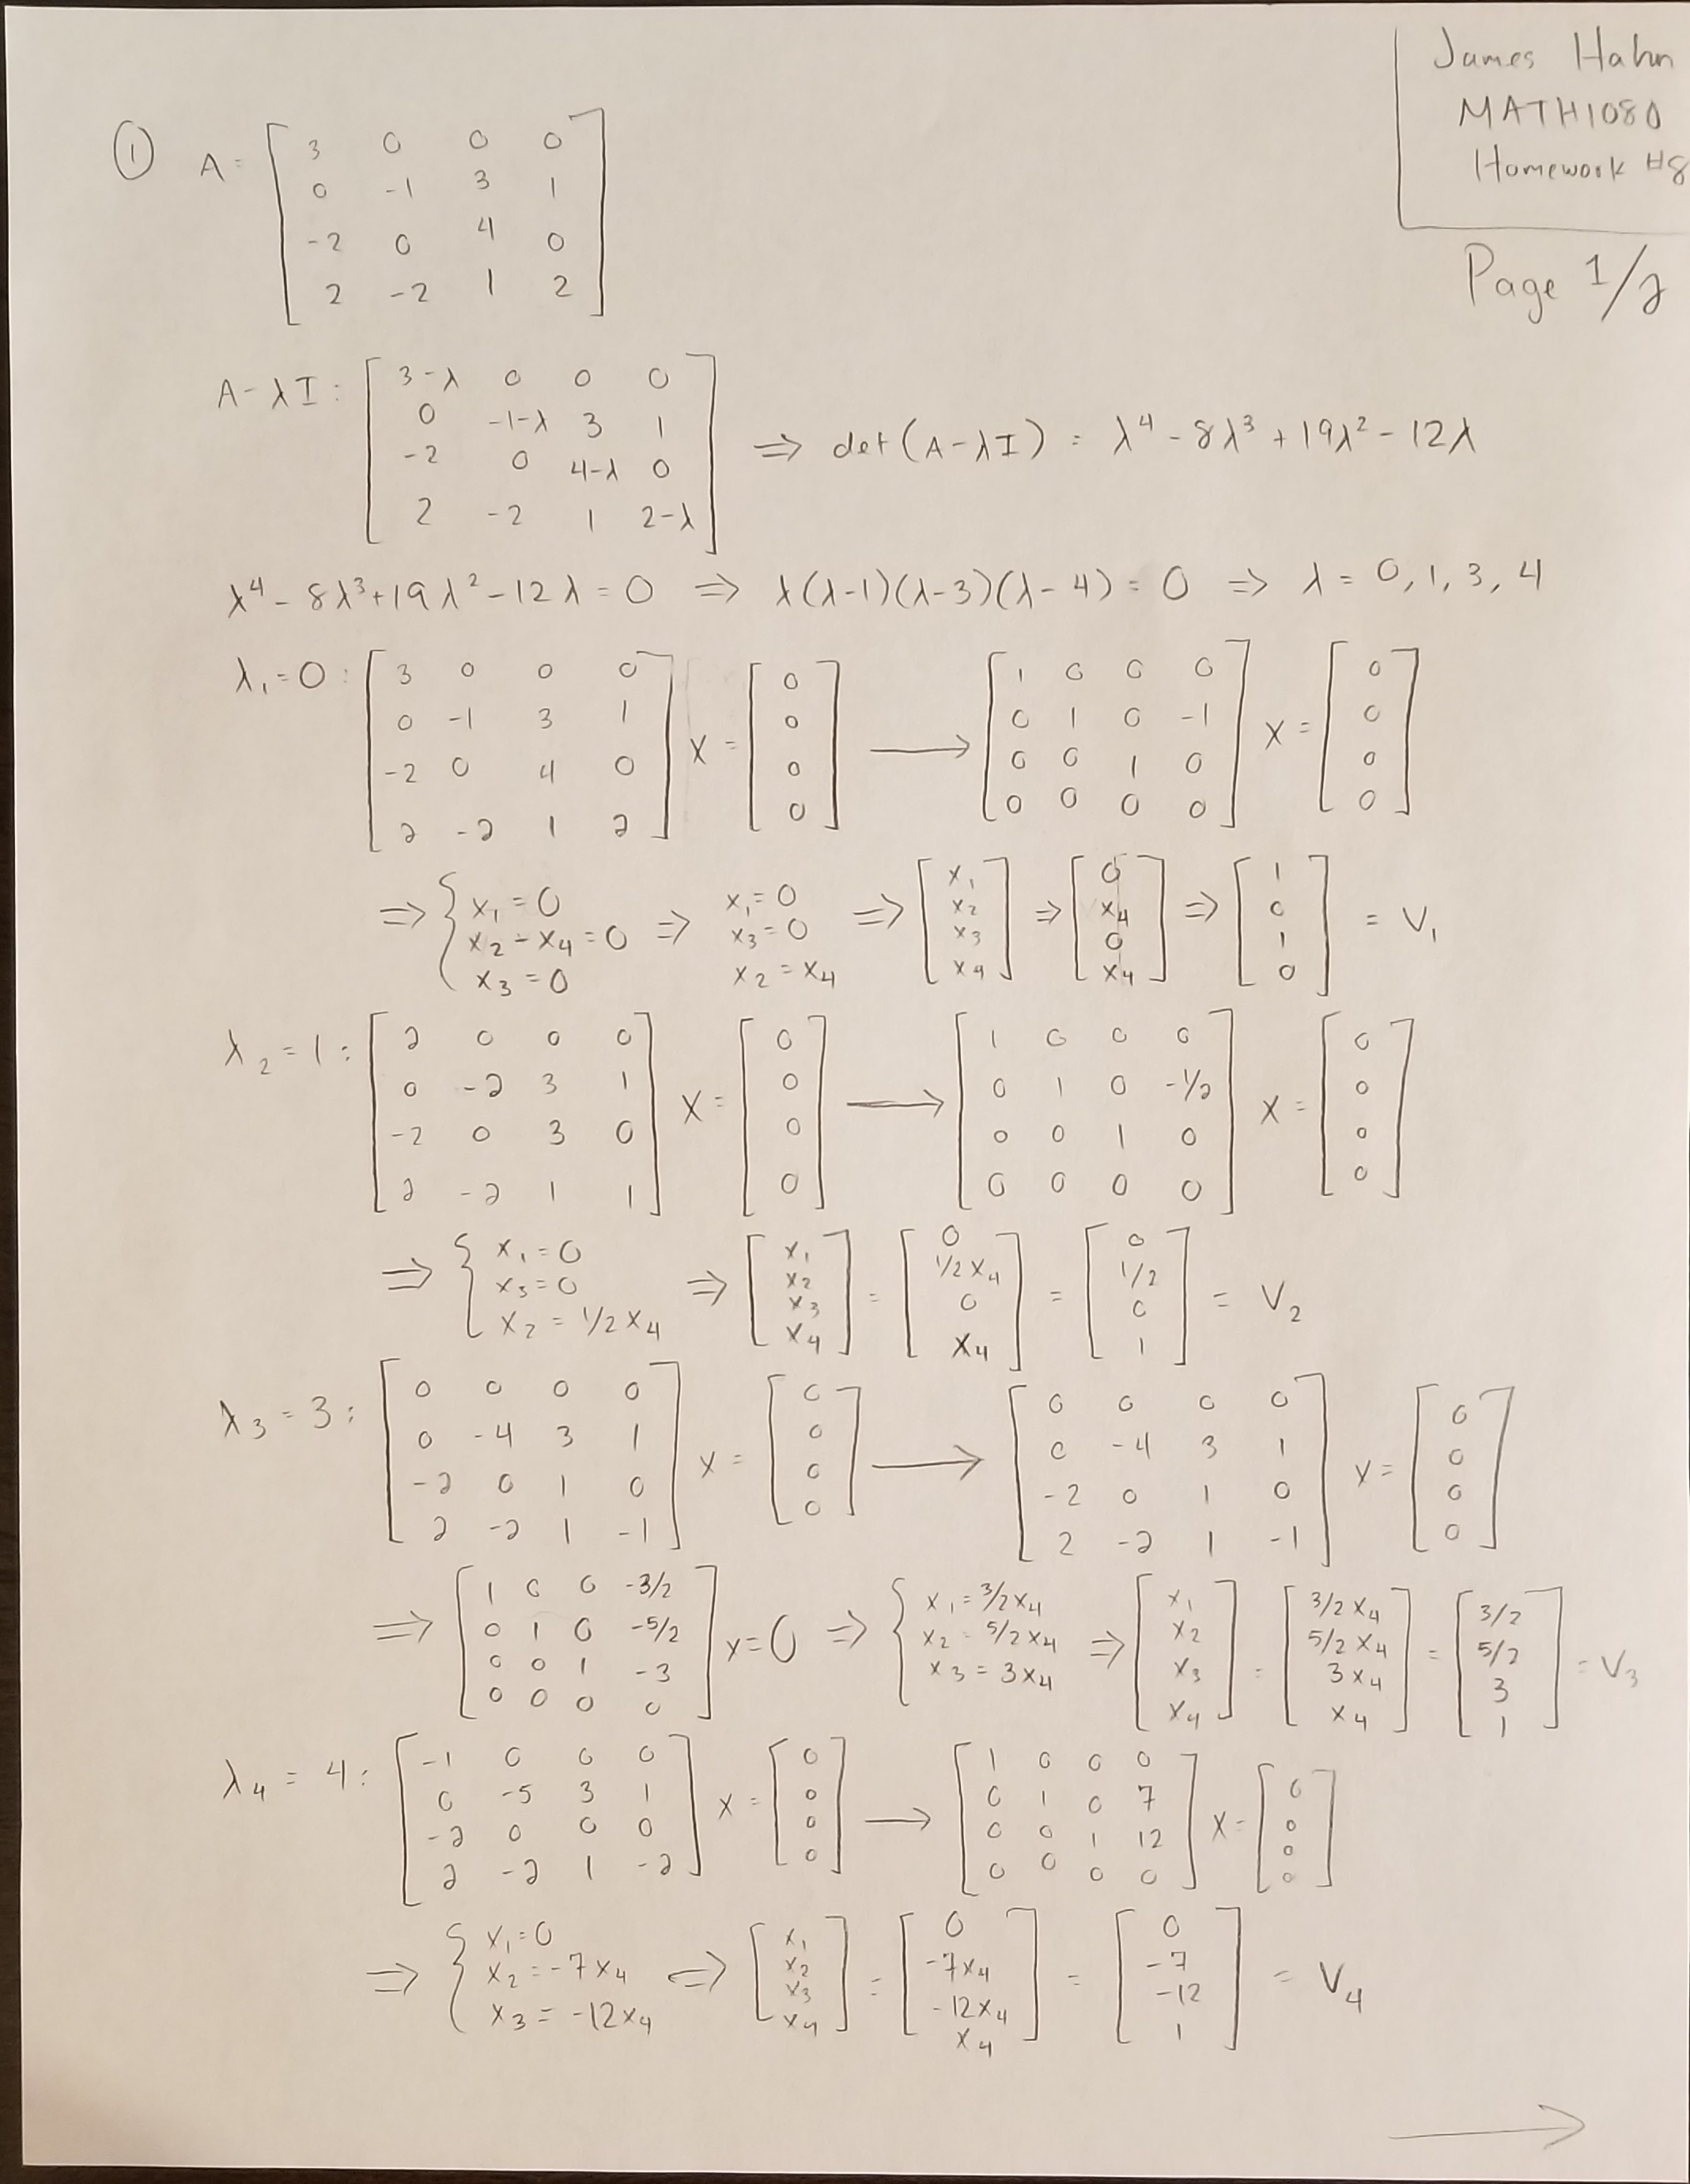 James Hahn
MATH1080
Homework #8
Page 1/2
① A = [3 0 0 0
0 -1 3 1
-2 0 4 0
2 -2 1 2]
A-λI: [3-λ 0 0 0
0 -1-λ 3 1
-2 0 4-λ 0
2 -2 1 2-λ] ⇒ det(A-λI) = λ⁴ - 8λ³ + 19λ² - 12λ
λ⁴ - 8λ³ + 19λ² - 12λ = 0 ⇒ λ(λ-1)(λ-3)(λ-4) = 0 ⇒ λ = 0, 1, 3, 4
λ₁ = 0: [3 0 0 0
0 -1 3 1
-2 0 4 0
2 -2 1 2] x = [0 0 0 0] → [1 0 0 0
0 1 0 -1
0 0 1 0
0 0 0 0] x = [0 0 0 0]
⇒ { x₁ = 0
x₂ - x₄ = 0
x₃ = 0 ⇒ x₁ = 0
x₃ = 0
x₂ = x₄ ⇒ [x₁ x₂ x₃ x₄] ⇒ [0 x₄ 0 x₄] ⇒ [1 0 1 0] = V₁
λ₂ = 1: [2 0 0 0
0 -2 3 1
-2 0 3 0
2 -2 1 1] x = [0 0 0 0] → [1 0 0 0
0 1 0 -1/2
0 0 1 0
0 0 0 0] x = [0 0 0 0]
⇒ { x₁ = 0
x₃ = 0
x₂ = 1/2 x₄ ⇒ [x₁ x₂ x₃ x₄] = [0 1/2x₄ 0 x₄] = [0 1/2 0 1] = V₂
λ₃ = 3: [0 0 0 0
0 -4 3 1
-2 0 1 0
2 -2 1 -1] x = [0 0 0 0] → [0 0 0 0
0 -4 3 1
-2 0 1 0
2 -2 1 -1] x = [0 0 0 0]
⇒ [1 0 0 -3/2
0 1 0 -5/2
0 0 1 -3
0 0 0 0] x = 0 ⇒ { x₁ = 3/2x₄
x₂ = 5/2x₄
x₃ = 3x₄ ⇒ [x₁ x₂ x₃ x₄] = [3/2x₄ 5/2x₄ 3x₄ x₄] = [3/2 5/2 3 1] = V₃
λ₄ = 4: [-1 0 0 0
0 -5 3 1
-2 0 0 0
2 -2 1 -2] x = [0 0 0 0] → [1 0 0 0
0 1 0 7
0 0 1 12
0 0 0 0] x = [0 0 0 0]
⇒ { x₁ = 0
x₂ = -7x₄
x₃ = -12x₄ ⇒ [x₁ x₂ x₃ x₄] = [0 -7x₄ -12x₄ x₄] = [0 -7 -12 1] = V₄
→